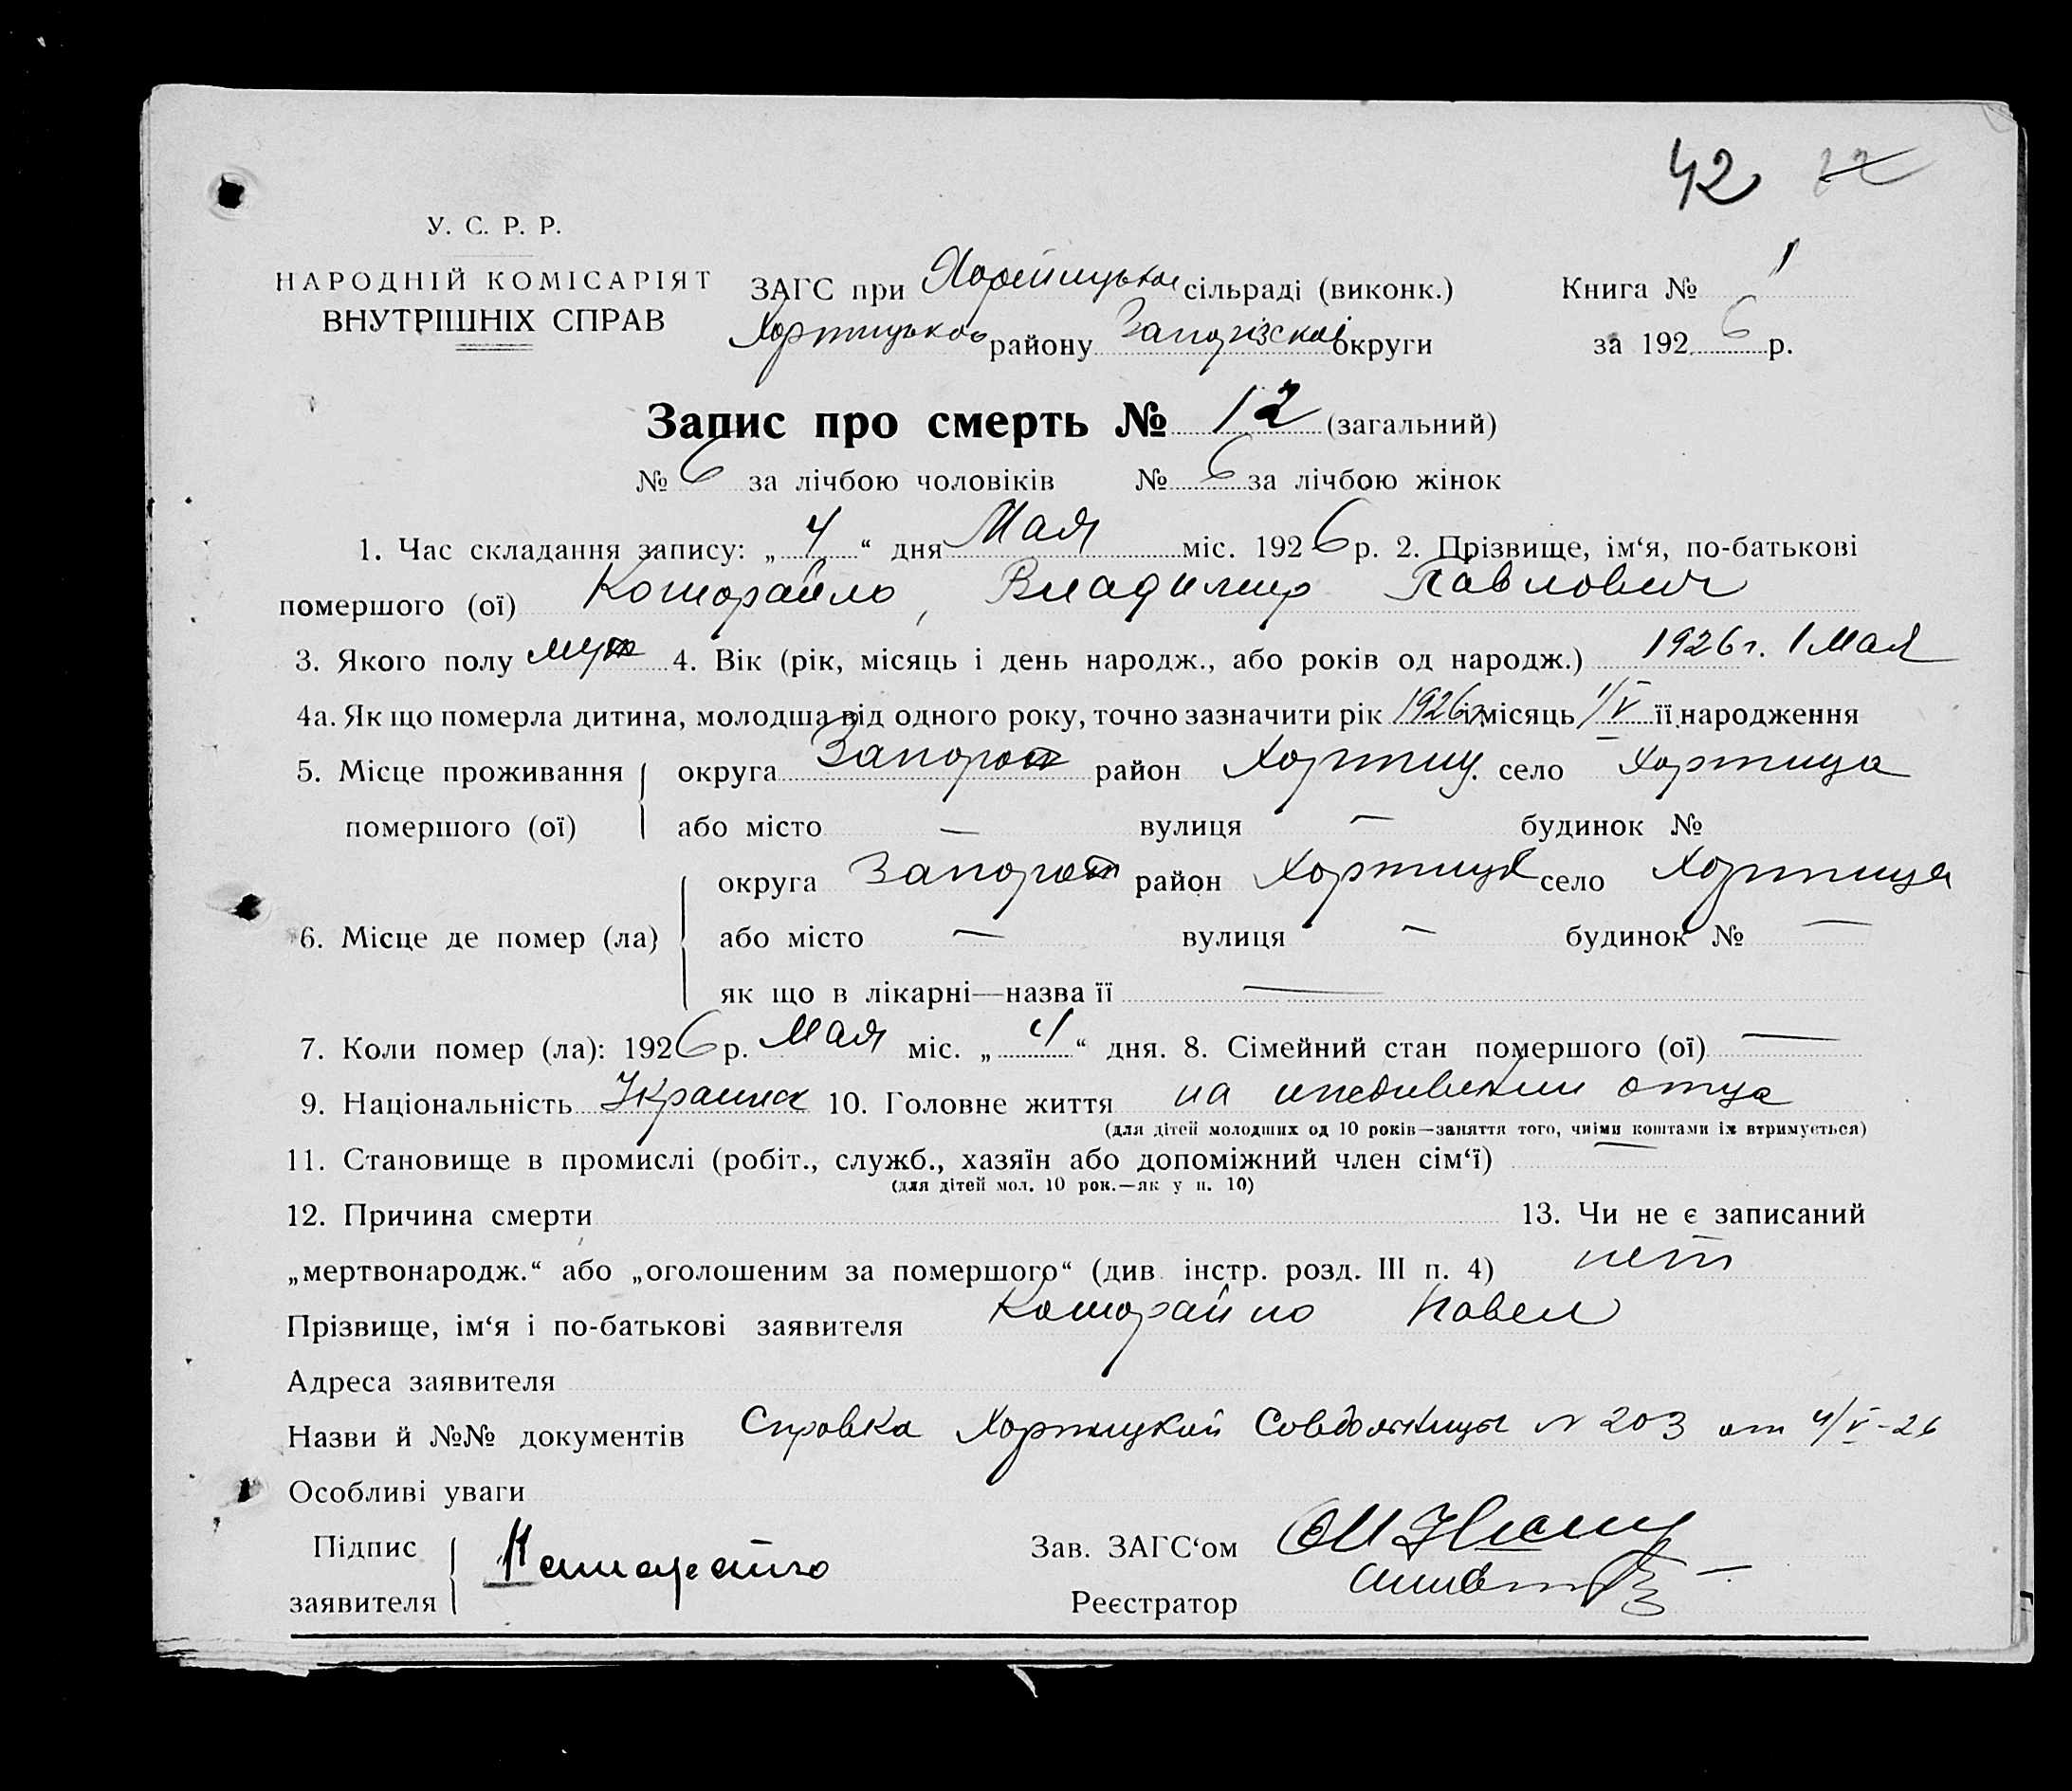 42 12
У. С. Р. Р.
НАРОДНІЙ КОМІСАРІЯТ
ВНУТРІШНІХ СПРАВ
ЗАГС при Хортицькое сільраді (виконк.)
Хортицького району Запорізскої округи
Книга № 1
за 192 6 р.
Запис про смерть № 12 (загальний)
№ 6 за лічбою чоловіків № 6 за лічбою жінок
1. Час складання запису: „ 4 “ дня Мая міс. 1926 р. 2. Прізвище, ім‘я, по-батькові
помершого (ої) Которайло, Владимир Павлович
3. Якого полу муж 4. Вік (рік, місяць і день народж., або років од народж.) 1926 г. 1 Мая
4а. Як що померла дитина, молодша від одного року, точно зазначити рік 1926 г. і місяць 1/V її народження
5. Місце проживання помершого (ої) округа Запорож район Хортиц. село Хортица
або місто — вулиця — будинок №
6. Місце де помер (ла) округа Запорож район Хортицк село Хортица
або місто — вулиця — будинок № —
як що в лікарні—назва її —
7. Коли помер (ла): 1926 р. Мая міс. „ 4 “ дня. 8. Сімейний стан помершого (ої) —
9. Національність Украинск 10. Головне життя на иждивении отца
(для дітей молодших од 10 років—заняття того, чиїми коштами їх втримується)
11. Становище в промислі (робіт., служб., хазяїн або допоміжний член сім‘ї) —
(для дітей мол. 10 рок.—як у п. 10)
12. Причина смерти 13. Чи не є записаний
„мертвонародж.“ або „оголошеним за помершого“ (див. інстр. розд. III п. 4) нет
Прізвище, ім‘я і по-батькові заявителя Которайло Павел
Адреса заявителя
Назви й №№ документів Справка Хортицкой Совбольницы N 203 от 4/V-26
Особливі уваги
Підпис заявителя Которайло
Зав. ЗАГС‘ом
Реєстратор